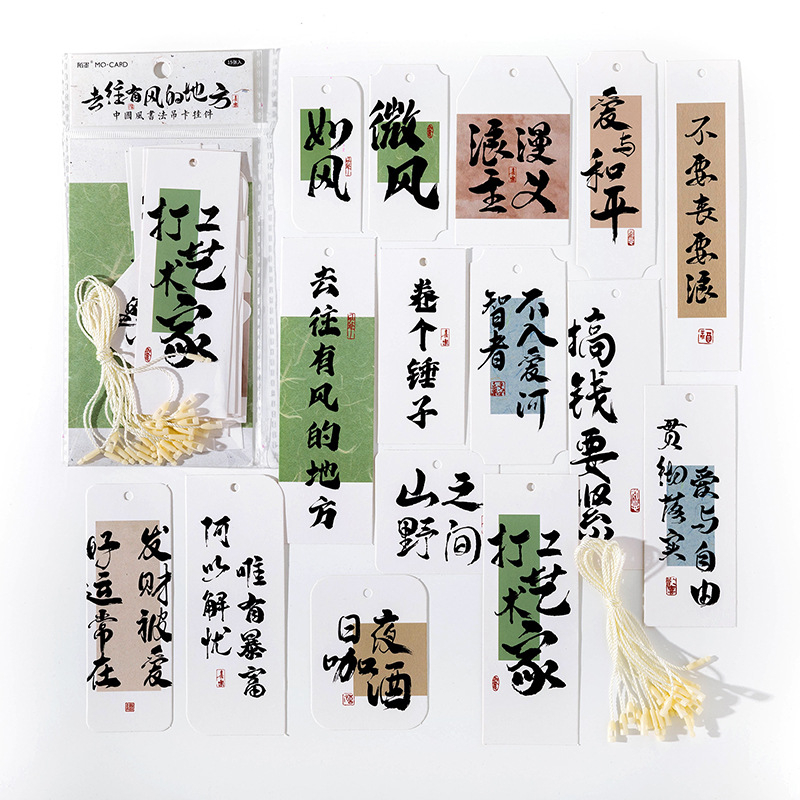 MO·CARD
15张入
去往有风的地方
中國風書法吊卡挂件
打工艺术家
如风
微风
浪漫
主义
爱与
和平
不要丧要浪
去往有风的地方
卷个锤子
智者
不入爱河
搞钱要紧
山野
之间
贯彻落实
爱与自由
发财被爱
好运常在
何以解忧
唯有暴富
日咖
夜酒
打工艺术家